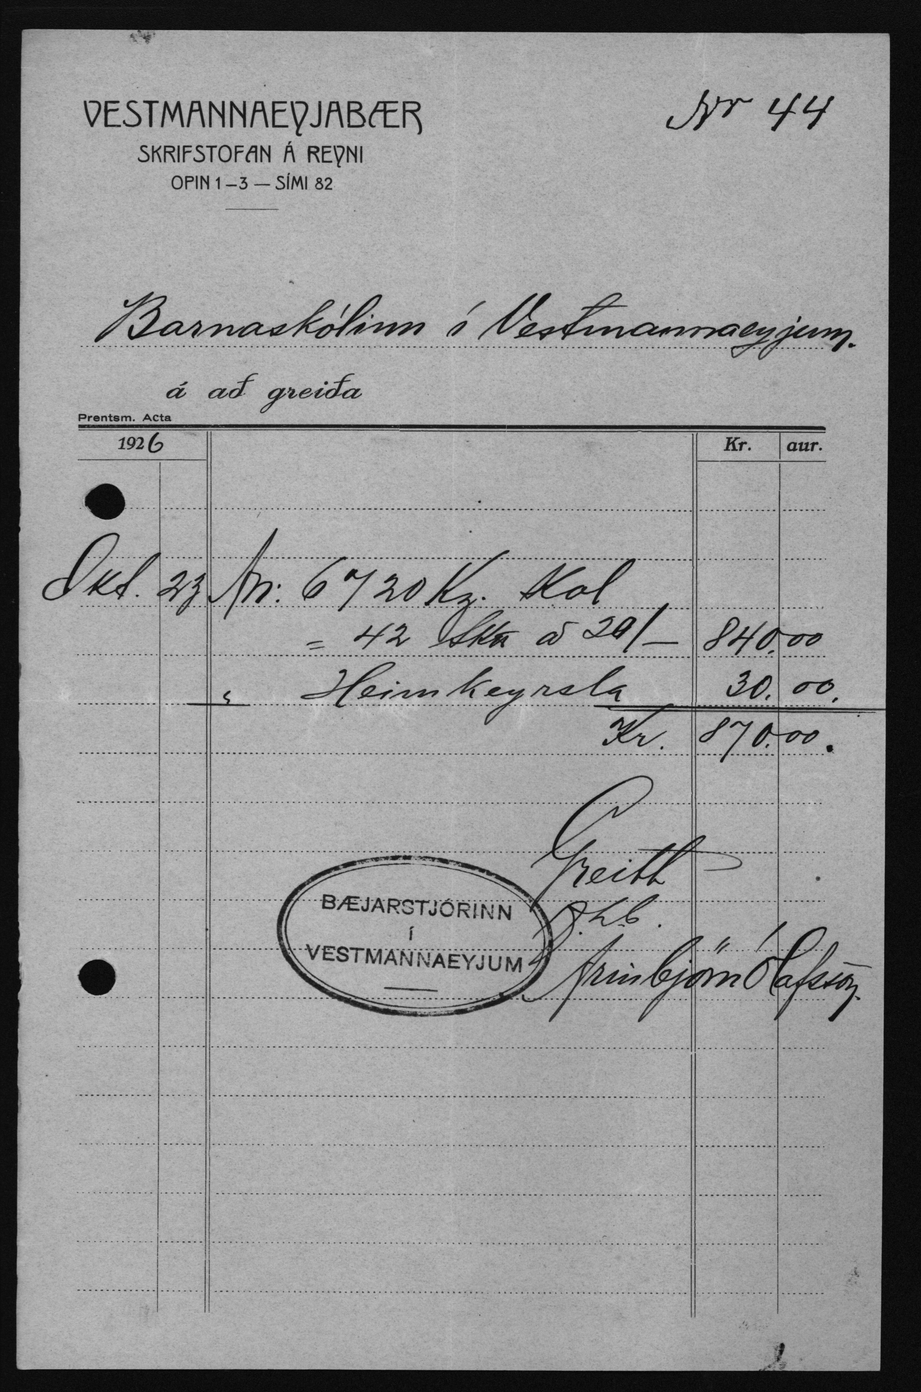 VESTMANNAEYJABÆR
Nr 44
SKRIFSTOFAN Á REYNI
OPIN 1–3 — SÍMI 82
Barnaskólinn í Vestmannaeyjum.
á að greiða
Prentsm. Acta
1926 Kr. aur.
Okt. 23 An: 6720 Kg. Kol
= 42 Skp à 20/— 840.00
" Heimkeyrsla 30.00.
Kr. 870.00.
Greitt
BÆJARSTJÓRINN
Í
VESTMANNAEYJUM
Arinbjörn Ólafsson